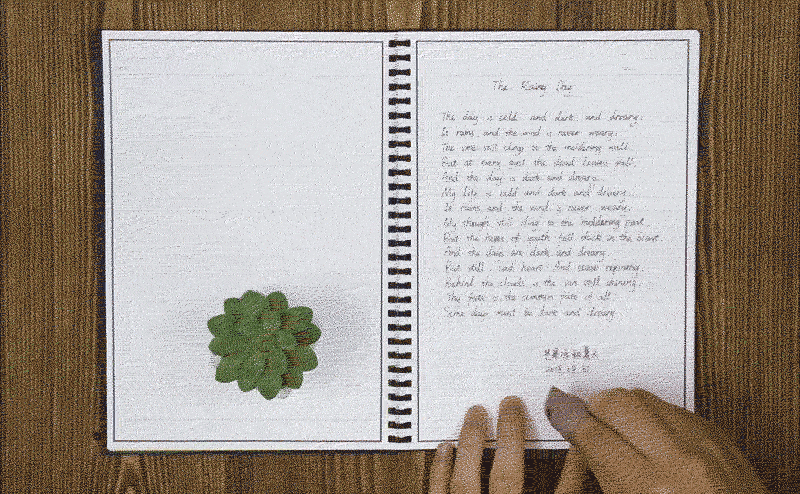 The Rainy Day
The day is cold and dark and dreary.
It rains, and the wind is never weary.
The vine still clings to the moldering wall.
But at every gust the dead leaves fall.
And the day is dark and dreary.
My life is cold and dark and dreary.
It rains and the wind is never weary.
My though still cling to the moldering past.
But the hopes of youth fall thick in the blast.
And the days are dark and dreary.
But still, sad heart. And cease repining.
Behind the clouds is the sun still shining.
Thy fate is the common fate of all.
Some days must be dark and dreary.